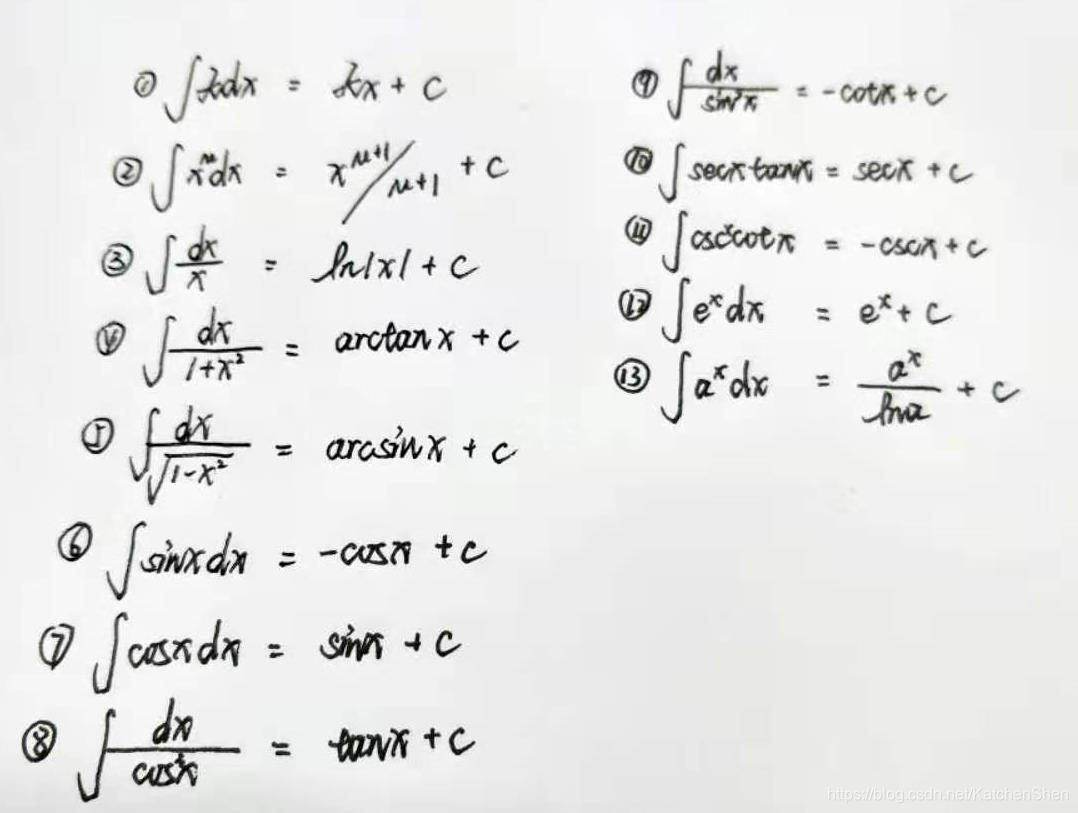 ① ∫kdx = kx + C
② ∫x^μdx = x^{μ+1}/μ+1 + C
③ ∫dx/x = ln|x| + C
④ ∫dx/1+x² = arctanx + C
⑤ ∫dx/√1-x² = arcsinx + C
⑥ ∫sinxdx = -cosx + C
⑦ ∫cosxdx = sinx + C
⑧ ∫dx/cos²x = tanx + C
⑨ ∫dx/sin²x = -cotx + C
⑩ ∫secxtanx = secx + C
⑪ ∫cscxcotx = -cscx + C
⑫ ∫e^xdx = e^x + C
⑬ ∫a^xdx = a^x/lna + C
https://blog.csdn.net/KatchenShen